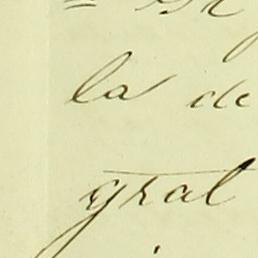 la de
gral